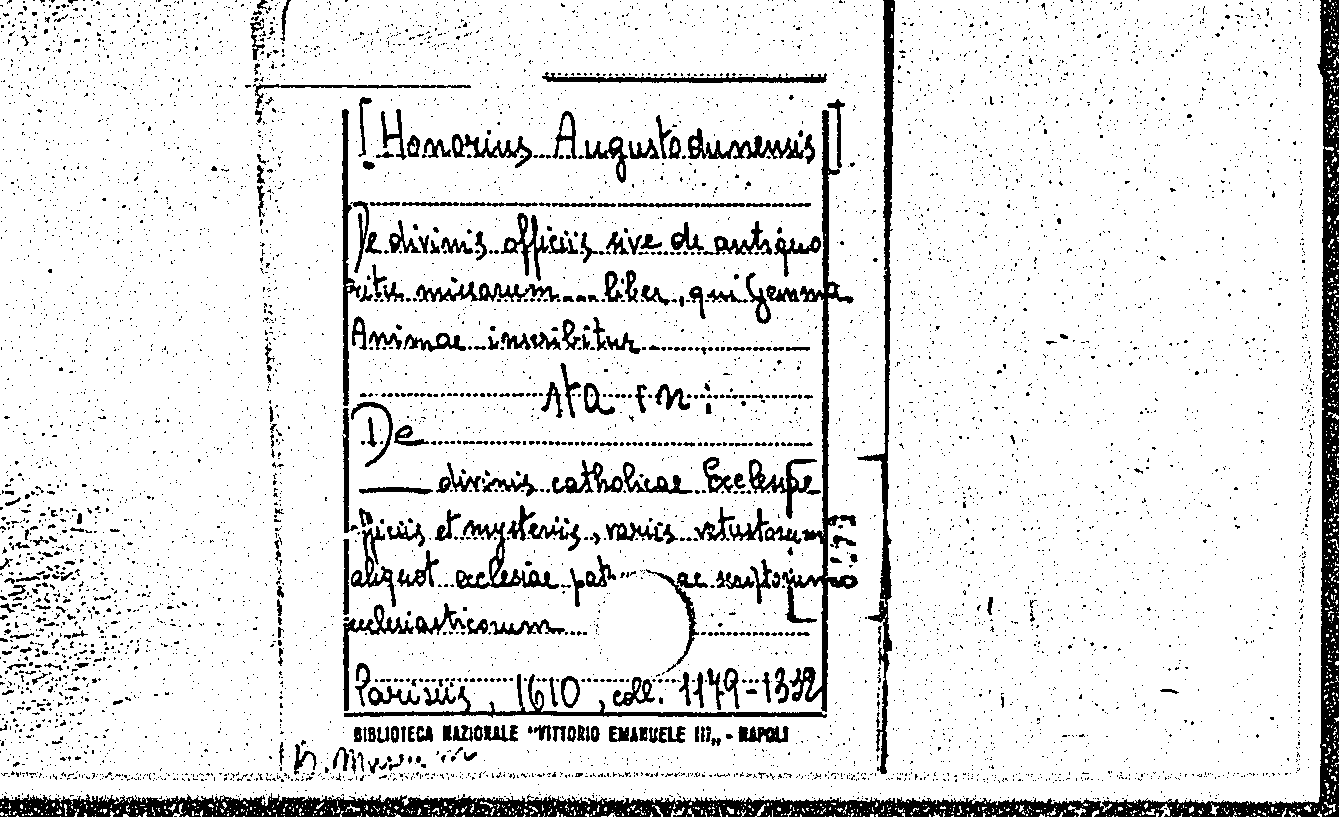 [Honorius Augustodunensis]
De divinis officiis sive de antiquo
ritu missarum... liber, qui Gemma
Animae inscribitur
sta in:
De
divinis catholicae Ecclesiae
officiis et mysteriis, variis vetustorum
aliquot ecclesiae ac scriptorum
ecclesiasticorum
Parisiis, 1610, coll. 1179-1332
BIBLIOTECA NAZIONALE "VITTORIO EMANUELE III„ - NAPOLI